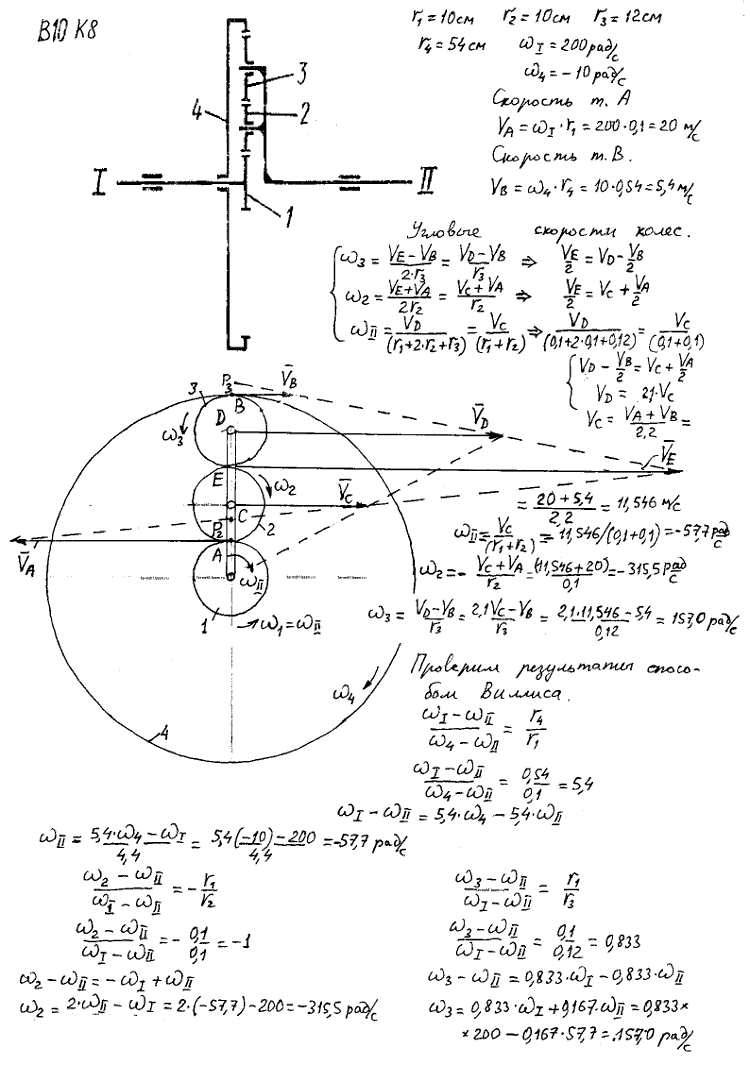 В10 К8
r₁ = 10см r₂ = 10см r₃ = 12см
r₄ = 54см ω_I = 200 рад/с
ω₄ = −10 рад/с
Скорость т. А
V_A = ω_I · r₁ = 200·0,1 = 20 м/с
Скорость т. В.
V_B = ω₄ · r₄ = 10·0,54 = 5,4 м/с
3
2
4
I
II
1
Угловые скорости колес.
ω₃ = (V_E − V_B)/(2·r₃) = (V_D − V_B)/r₃ ⇒ V_E/2 = V_D − V_B/2
ω₂ = (V_E + V_A)/(2r₂) = (V_C + V_A)/r₂ ⇒ V_E/2 = V_C + V_A/2
ω_II = V_D/(r₁+2·r₂+r₃) = V_C/(r₁+r₂) ⇒ V_D/(0,1+2·0,1+0,12) = V_C/(0,1+0,1)
V_D − V_B/2 = V_C + V_A/2
V_D = 2,1·V_C
V_C = (V_A + V_B)/2,2 =
P₃
V̄_B
3
B
D
V̄_D
ω₃
V̄_E
E
ω₂
V̄_C
C
P₂
2
V̄_A
A
ω_II
1
ω₁ = ω_II
ω₄
4
= (20 + 5,4)/2,2 = 11,546 м/с
ω_II = V_C/(r₁+r₂) = 11,546/(0,1+0,1) = −57,7 рад/с
ω₂ = − (V_C + V_A)/r₂ = (11,546+20)/0,1 = −315,5 рад/с
ω₃ = (V_D − V_B)/r₃ = (2,1V_C − V_B)/r₃ = (2,1·11,546 − 5,4)/0,12 = 157,0 рад/с
Проверим результаты спосо-
бом Виллиса.
(ω_I − ω_II)/(ω₄ − ω_II) = r₄/r₁
(ω_I − ω_II)/(ω₄ − ω_II) = 0,54/0,1 = 5,4
ω_I − ω_II = 5,4·ω₄ − 5,4·ω_II
ω_II = (5,4·ω₄ − ω_I)/4,4 = (5,4(−10) − 200)/4,4 = −57,7 рад/с
(ω₂ − ω_II)/(ω_I − ω_II) = − r₁/r₂
(ω₂ − ω_II)/(ω_I − ω_II) = − 0,1/0,1 = −1
ω₂ − ω_II = −ω_I + ω_II
ω₂ = 2·ω_II − ω_I = 2·(−57,7) − 200 = −315,5 рад/с
(ω₃ − ω_II)/(ω_I − ω_II) = r₁/r₃
(ω₃ − ω_II)/(ω_I − ω_II) = 0,1/0,12 = 0,833
ω₃ − ω_II = 0,833·ω_I − 0,833·ω_II
ω₃ = 0,833·ω_I + 0,167·ω_II = 0,833×
×200 − 0,167·57,7 = 157,0 рад/с